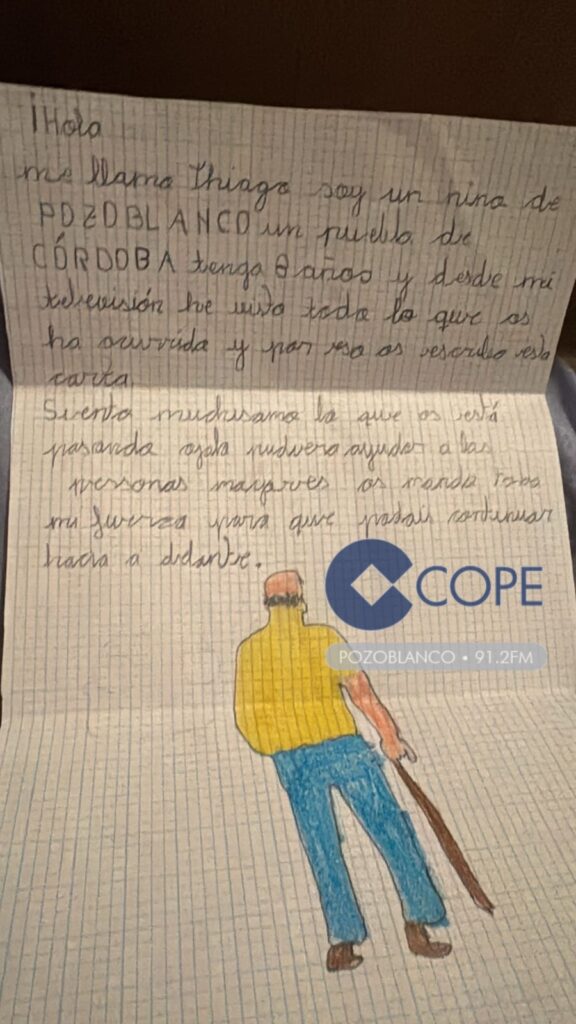 ¡Hola
me llamo Thiago soy un niño de
POZOBLANCO un pueblo de
CÓRDOBA tengo 8 años y desde mi
televisión he visto todo lo que os
ha ocurrido y por eso os escribo esta
carta.
Siento muchisamo lo que os está
pasando ojala pudiera ayudar a las
personas mayores os mando toda
mi fuerza para que podais continuar
hacia a delante.
COPE
POZOBLANCO • 91.2FM